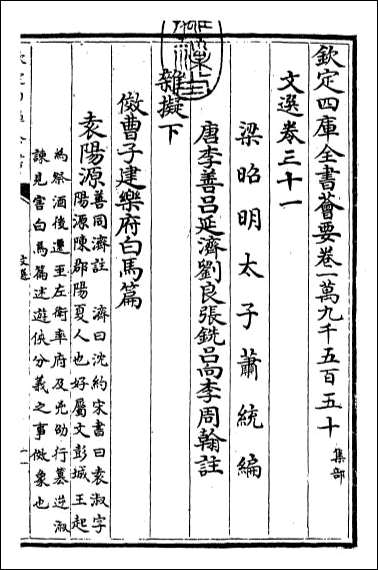 欽定四庫全書薈要卷一萬九千五百五十
集部
文選卷三十一
梁昭明太子蕭統編
唐李善呂延濟劉良張銑呂向李周翰註
雜擬下
傚曹子建樂府白馬篇
袁陽源善同濟註　濟曰沈約宋書曰袁淑字
陽源陳郡陽夏人也好屬文彭城王起
為祭酒後遷至左衛率府及兇劭行慕逆淑
諫見害白馬篇述遊俠分義之事倣象也